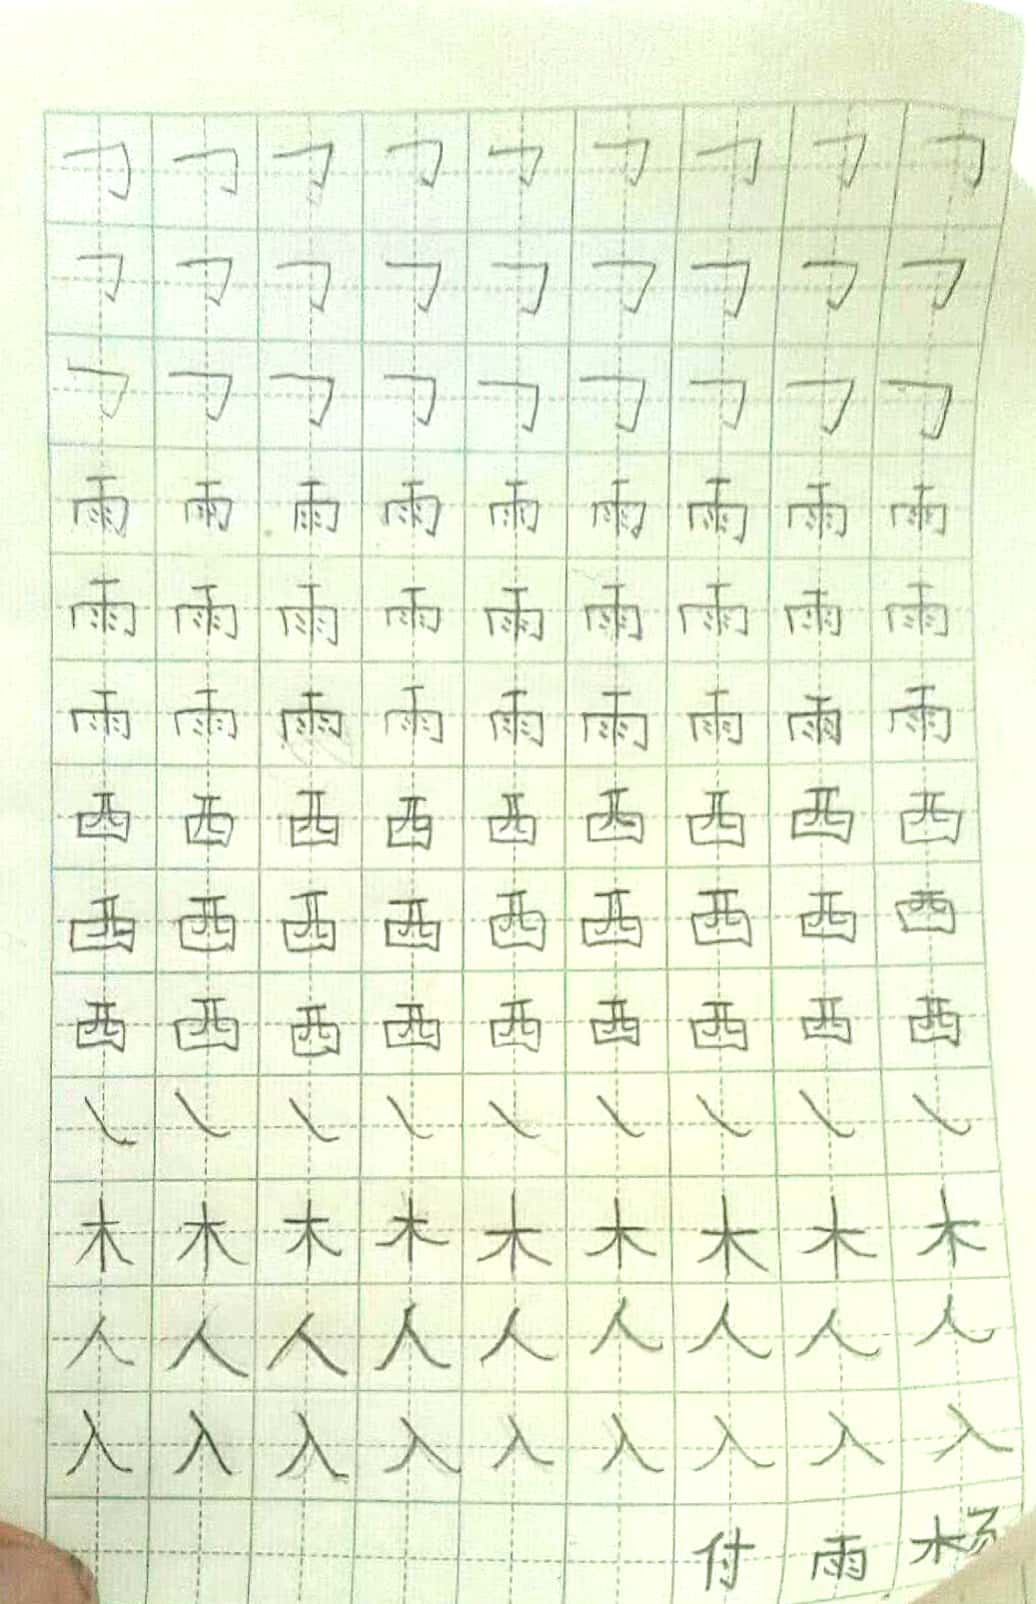 𠃌 𠃌 𠃌 𠃌 𠃌 𠃌 𠃌 𠃌 𠃌
𠃌 𠃌 𠃌 𠃌 𠃌 𠃌 𠃌 𠃌 𠃌
𠃌 𠃌 𠃌 𠃌 𠃌 𠃌 𠃌 𠃌 𠃌
雨 雨 雨 雨 雨 雨 雨 雨 雨
雨 雨 雨 雨 雨 雨 雨 雨 雨
雨 雨 雨 雨 雨 雨 雨 雨 雨
西 西 西 西 西 西 西 西 西
西 西 西 西 西 西 西 西 西
西 西 西 西 西 西 西 西 西
㇏ ㇏ ㇏ ㇏ ㇏ ㇏ ㇏ ㇏ ㇏
木 木 木 木 木 木 木 木 木
人 人 人 人 人 人 人 人 人
入 入 入 入 入 入 入 入 入
付 雨 杨